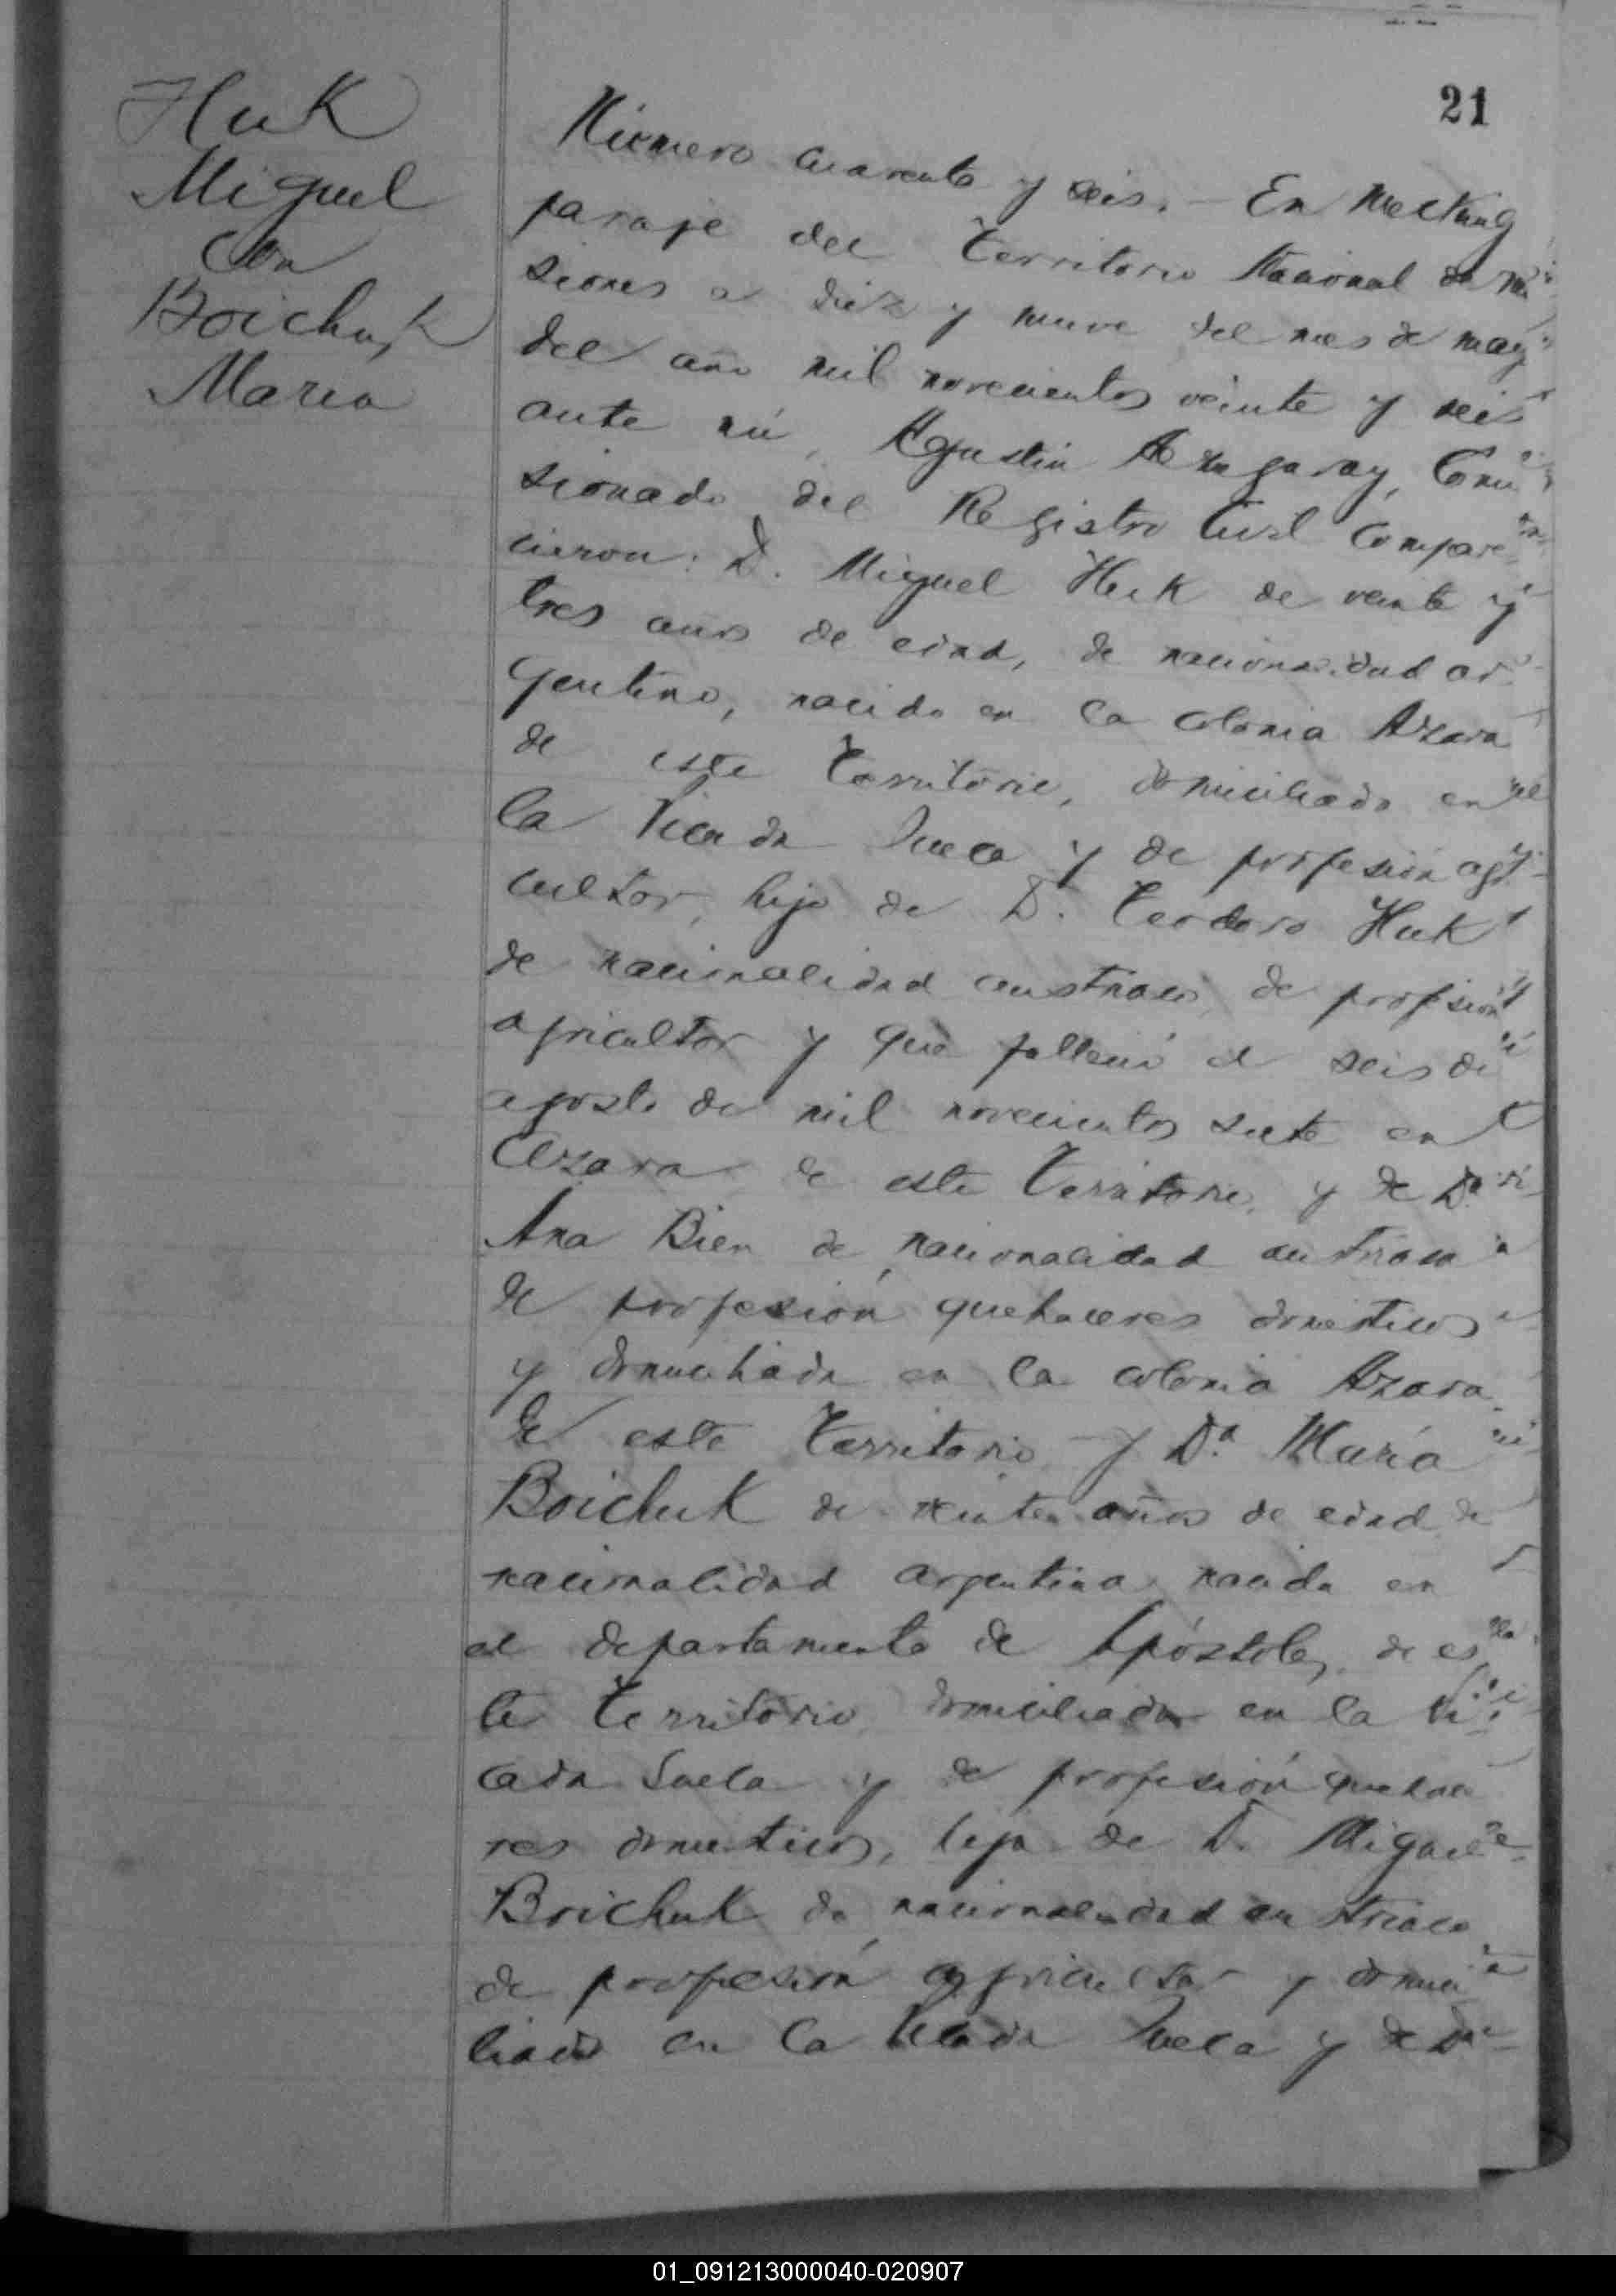 21
Huk
Miguel
Con
Boichuk
María
Número cuarenta y seis. — En Mecking
paraje del Territorio Nacional de Mi
siones a diez y nueve del mes de mayo
del año mil novecientos veinte y seis
ante mí, Agustín Amgaray, Comi
sionado del Registro Civil compare
cieron: D. Miguel Huk de veinte y
tres años de edad, de nacionalidad ar
gentino, nacido en la colonia Azara
de este Territorio, domiciliado en
la Picada Sueca y de profesión agri
cultor, hijo de D. Teodoro Huk
de nacionalidad austriaco, de profesión
agricultor y que falleció el seis de
agosto de mil novecientos siete en
Azara de este Territorio, y de Da
Ana Bien de nacionalidad austriaca
de profesión quehaceres domésticos
y domiciliada en la colonia Azara
de este Territorio y Da. María
Boichuk de veinte años de edad de
nacionalidad argentina nacida en
el departamento de Apóstoles, de es
te Territorio, domiciliada en la Pi
cada Sueca y de profesión quehace
res domésticos, hija de D. Miguel
Boichuk de nacionalidad austriaco
de profesión agricultor y domici
liado en la Picada Sueca y de Da
01_091213000040-020907